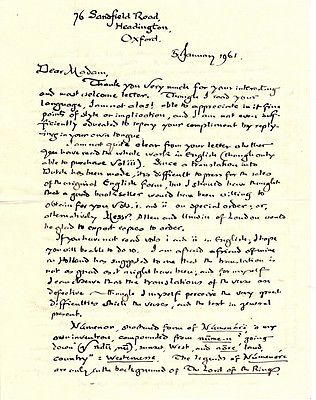 76 Sandfield Road,
Headington,
Oxford.
5 January 1961.
Dear Madam,
Thank you very much for your interesting
and most welcome letter. Though I read your
language, I am not alas! able to appreciate in it fine
points of style or implication, and I am not even suf-
ficiently educated to repay your compliment by reply-
ing in your own tongue.
I am not quite clear from your letter whether
you have read the whole work in English (though only
able to purchase Vol iii). Since a translation into
Dutch has been made, it is difficult to press for the sales
of the original English form, but I should have thought
that a good bookseller would have been willing to
obtain for you Vols. i. and ii on special order; or,
alternatively Messr. Allen and Unwin of London would
be glad to export copies to order.
If you have not read vols i and ii in English, I hope
you will be able to do so. I am afraid a friend of mine
in Holland has suggested to me that the translation is
not as good as it might have been; and for myself
I can observe that the translations of the verses are
defective – though I myself perceive the very great
difficulties which the verses, and the text in general
present.
Númenor, shortened form of Númenórë, is my
own invention, compounded from núme-n 'going
down' (√ndū, nu), sunset, West, and nōre 'land
country' = Westernesse. The legends of Númenórë
are only in the background of The Lord of the Rings